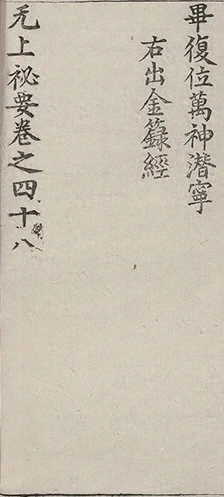 畢復位萬神潜寧
右出金籙經
无上祕要卷之四十八